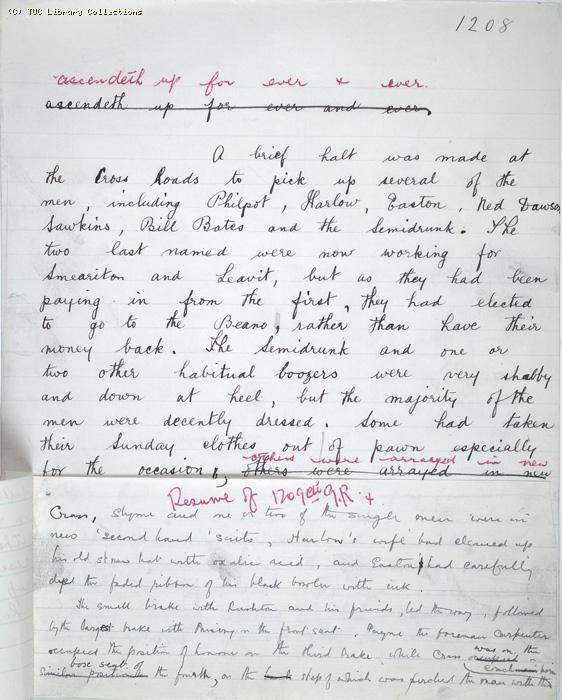 (C) TUC Library Collections
1208
ascendeth up for ever & ever.
ascendeth up for ever and ever,
A brief halt was made at
the Cross Roads to pick up several of the
men, including Philpot, Harlow, Easton, Ned Dawson
Sawkins, Bill Bates and the Semidrunk. The
two last named were now working for
Smeariton and Leavit, but as they had been
paying in from the first, they had elected
to go to the Beano, rather than have their
money back. The Semidrunk and one or
two other habitual boozers were very shabby
and down at heel, but the majority of the
men were decently dressed. Some had taken
their Sunday clothes out of pawn especially
others were arrayed in new
for the occasion, others were arrayed in new
Resume of 1209
Crass, Slyme and one or two of the single men were in
new 'second hand' suits, Harlow's wife had cleaned up
his old straw hat with oxalic acid, and Easton had carefully
dyed the faded ribbon of his black bowler with ink.
The small brake with Rushton and his friends, led the way, followed
by the largest brake with Misery on the front seat. Payne the foreman Carpenter
occupied the position of honour on the third brake while Crass was on the
box seat of
the fourth, on the step of which was perched the man with the